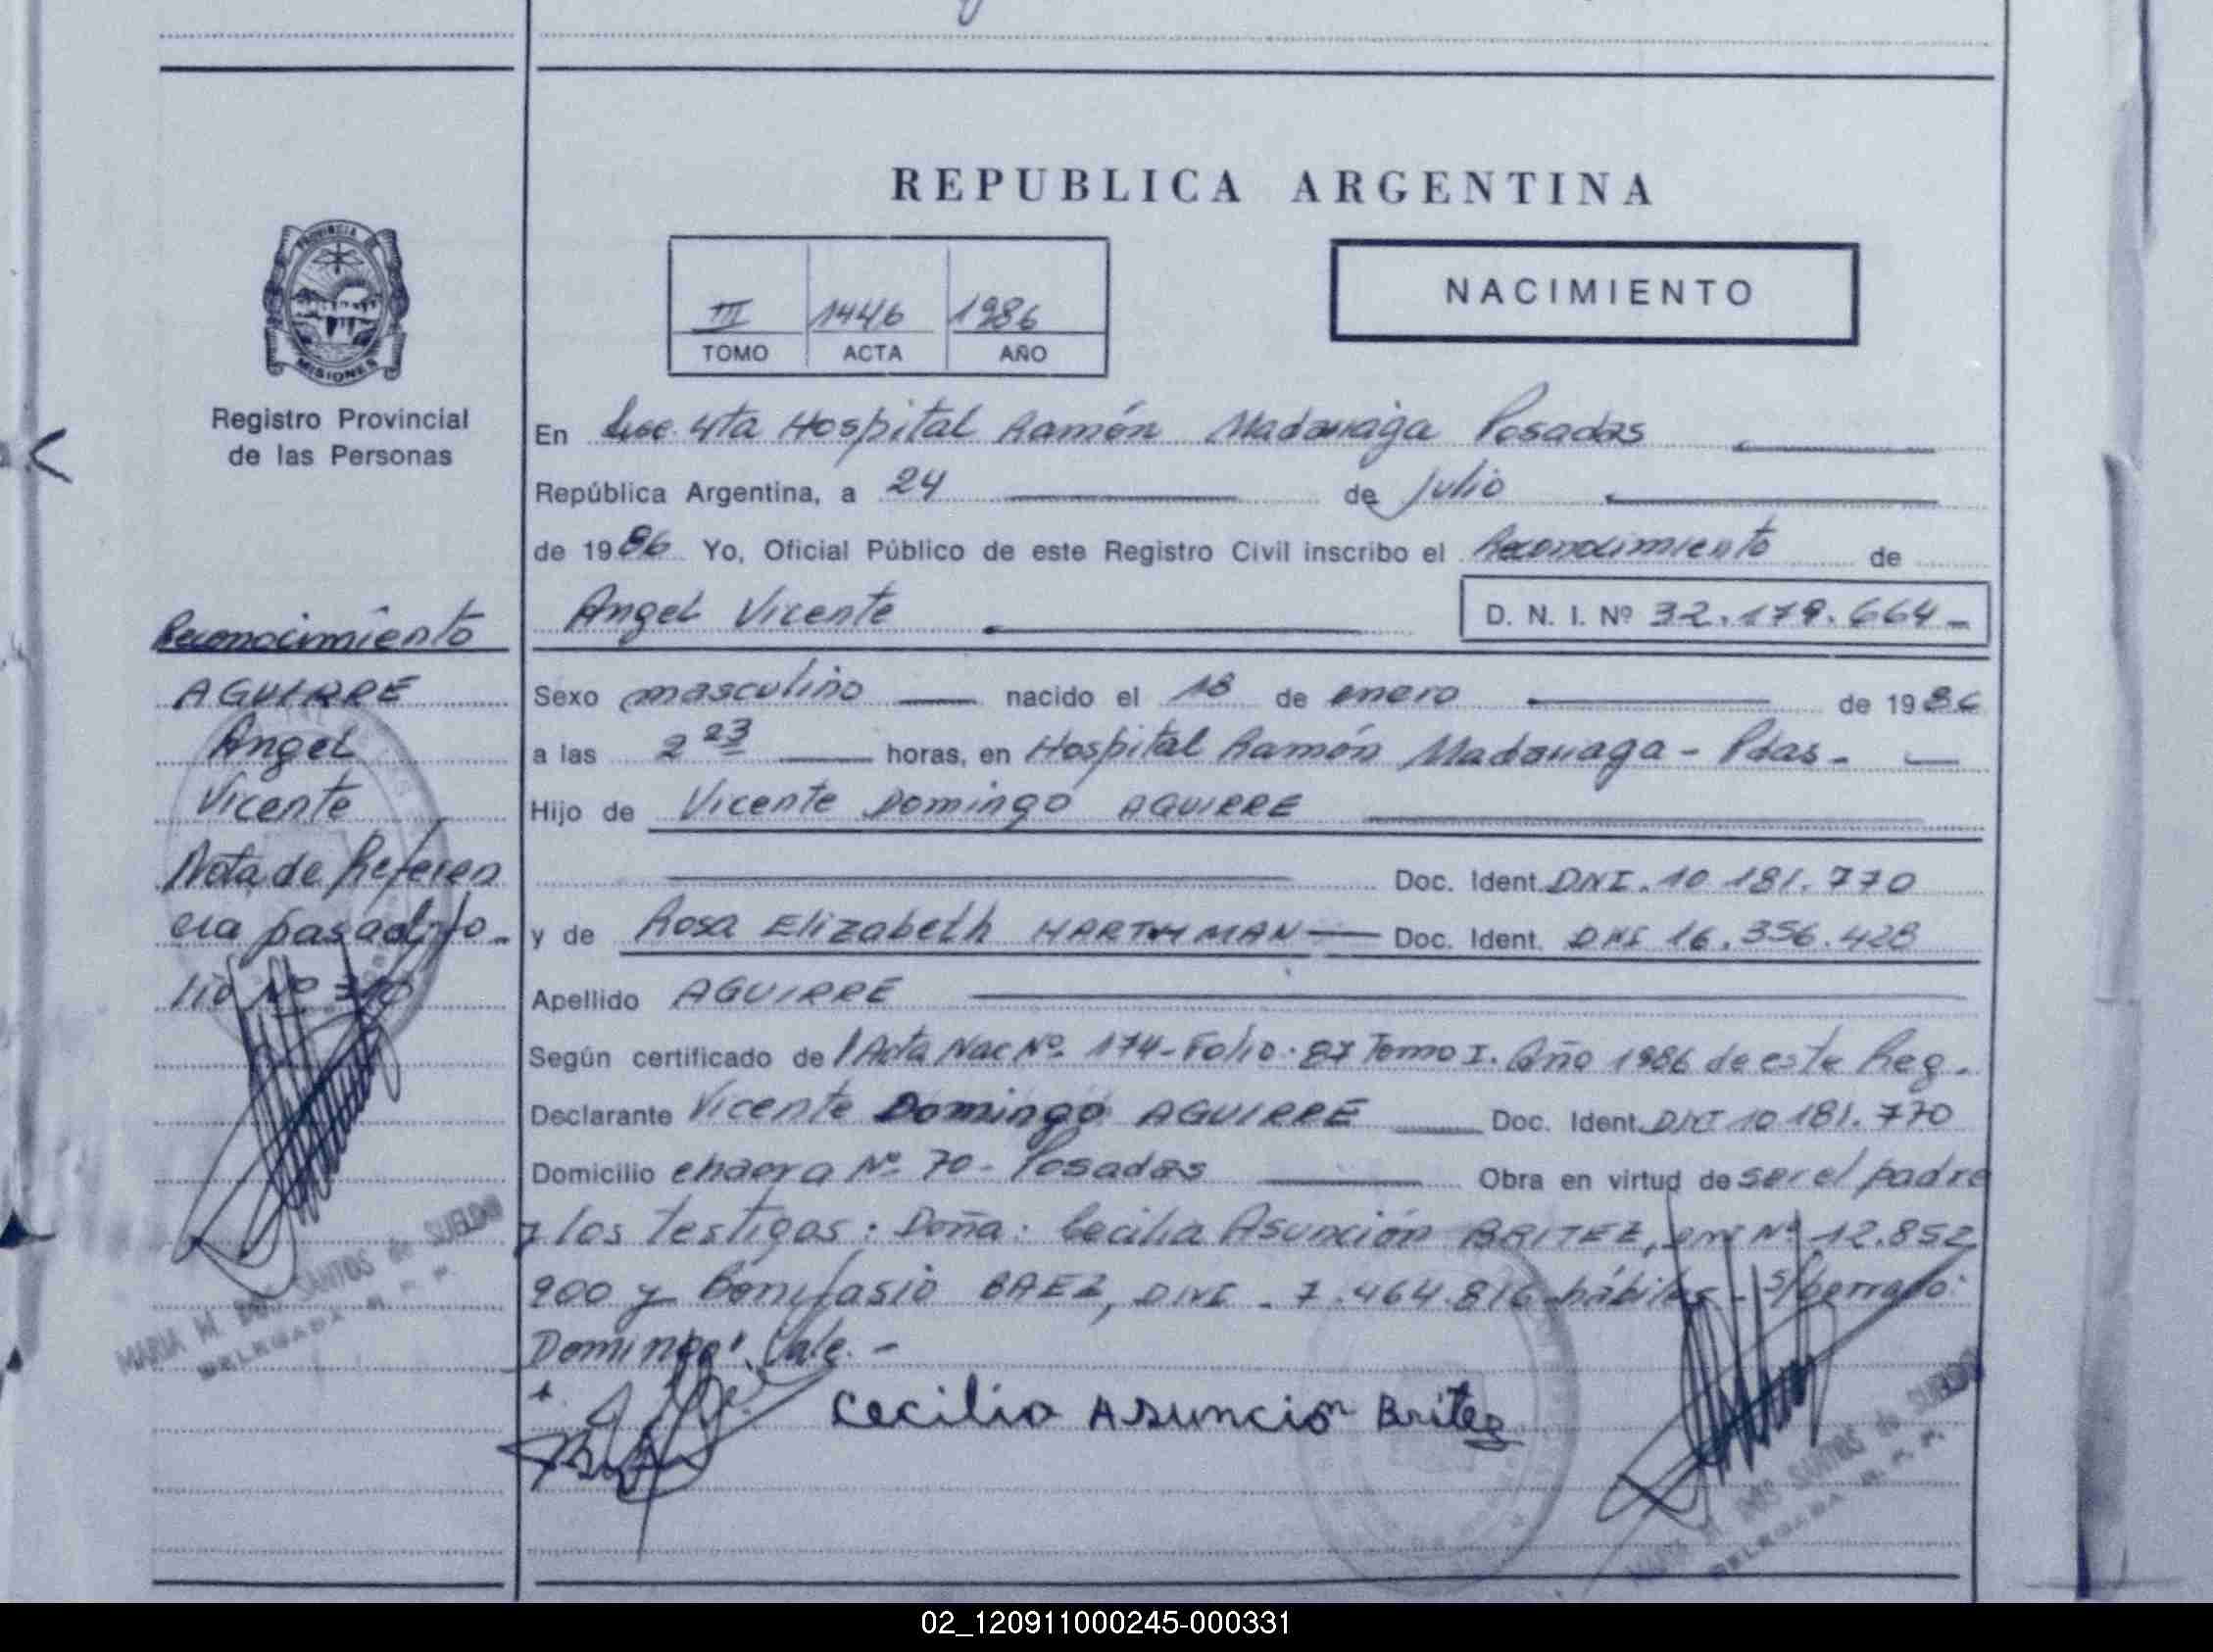 REPUBLICA ARGENTINA
III 1446 1986
TOMO ACTA AÑO
NACIMIENTO
PROVINCIA DE
MISIONES
Registro Provincial
de las Personas
En Secc. 4ta Hospital Ramón Madariaga Posadas
República Argentina, a 24 de Julio
de 1986 Yo, Oficial Público de este Registro Civil inscribo el Reconocimiento de
Angel Vicente D. N. I. Nº 32.179.664-
Reconocimiento
AGUIRRE
Angel
Vicente
Nota de Referen
cia pasada fo-
lio Nº
Sexo masculino nacido el 18 de enero de 1986
a las 2 23 horas, en Hospital Ramón Madariaga - Pdas-
Hijo de Vicente Domingo AGUIRRE
Doc. Ident. DNI. 10 181.770
y de Rosa Elizabeth HARTHMAN Doc. Ident. DNI 16.356.428
Apellido AGUIRRE
Según certificado de Acta Nac Nº 174-Folio. 87 Tomo I. Año 1986 de este Reg.
Declarante Vicente Domingo AGUIRRE Doc. Ident. DNI 10 181.770
Domicilio chacra Nº 70- Posadas Obra en virtud de ser el padre
y los testigos: Doña: Cecilia Asunción BRITEZ, DNI Nº 12.852
900 y Bonifasio BAEZ, DNI - 7.464.816 hábiles - s/borrado:
Domingo". Vale.-
Cecilia Asuncion Britez
MARIA M. DOS SANTOS de SUELDO
DELEGADA R. P. P.
MARIA M. DOS SANTOS de SUELDO
DELEGADA R. P. P.
02_120911000245-000331